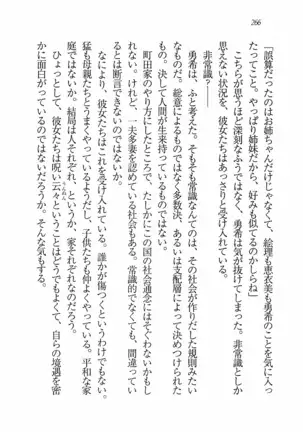 266
「誤算だったのはお姉ちゃんだけじゃなくて、絵理も恵美も勇希のことを気に入っ
たこと。やっぱり姉妹だから、好みも似てるのかしらね」
こちらが思うほど深刻なふうではなく、勇希は気が抜けてしまう。非常識としか
思えない状況を、彼女たちはあっさりと受け入れている。
非常識――
勇希は、ふと考えた。そもそも常識なんてのは、その社会が作りだした規則みたい
なものだ。総意によるものではなく多数決、あるいは支配層によって決めつけられた
もの。決して人間が生来持っているものではない。
町田家のやり方にしたところで、たしかにこの国の社会通念にはそぐわないかもし
れない。けれど、一夫多妻を認めている社会もある。常識的でなくても、間違ってい
るとは断言できないのではないか。
なにより、彼女たちはこれを受け入れている。誰かが傷つくというわけでもない。
猛も母親たちとうまくやっているようだし、子供たちも仲よくやっている。平和な家
庭ではないか。結局は人それぞれ、というか、家それぞれなのだろう。
ひょっとして、彼女たちは呪い云々ということはどうでもよくて、自らの境遇を密
かに面白がっているのではないだろうか。そんな気もする。